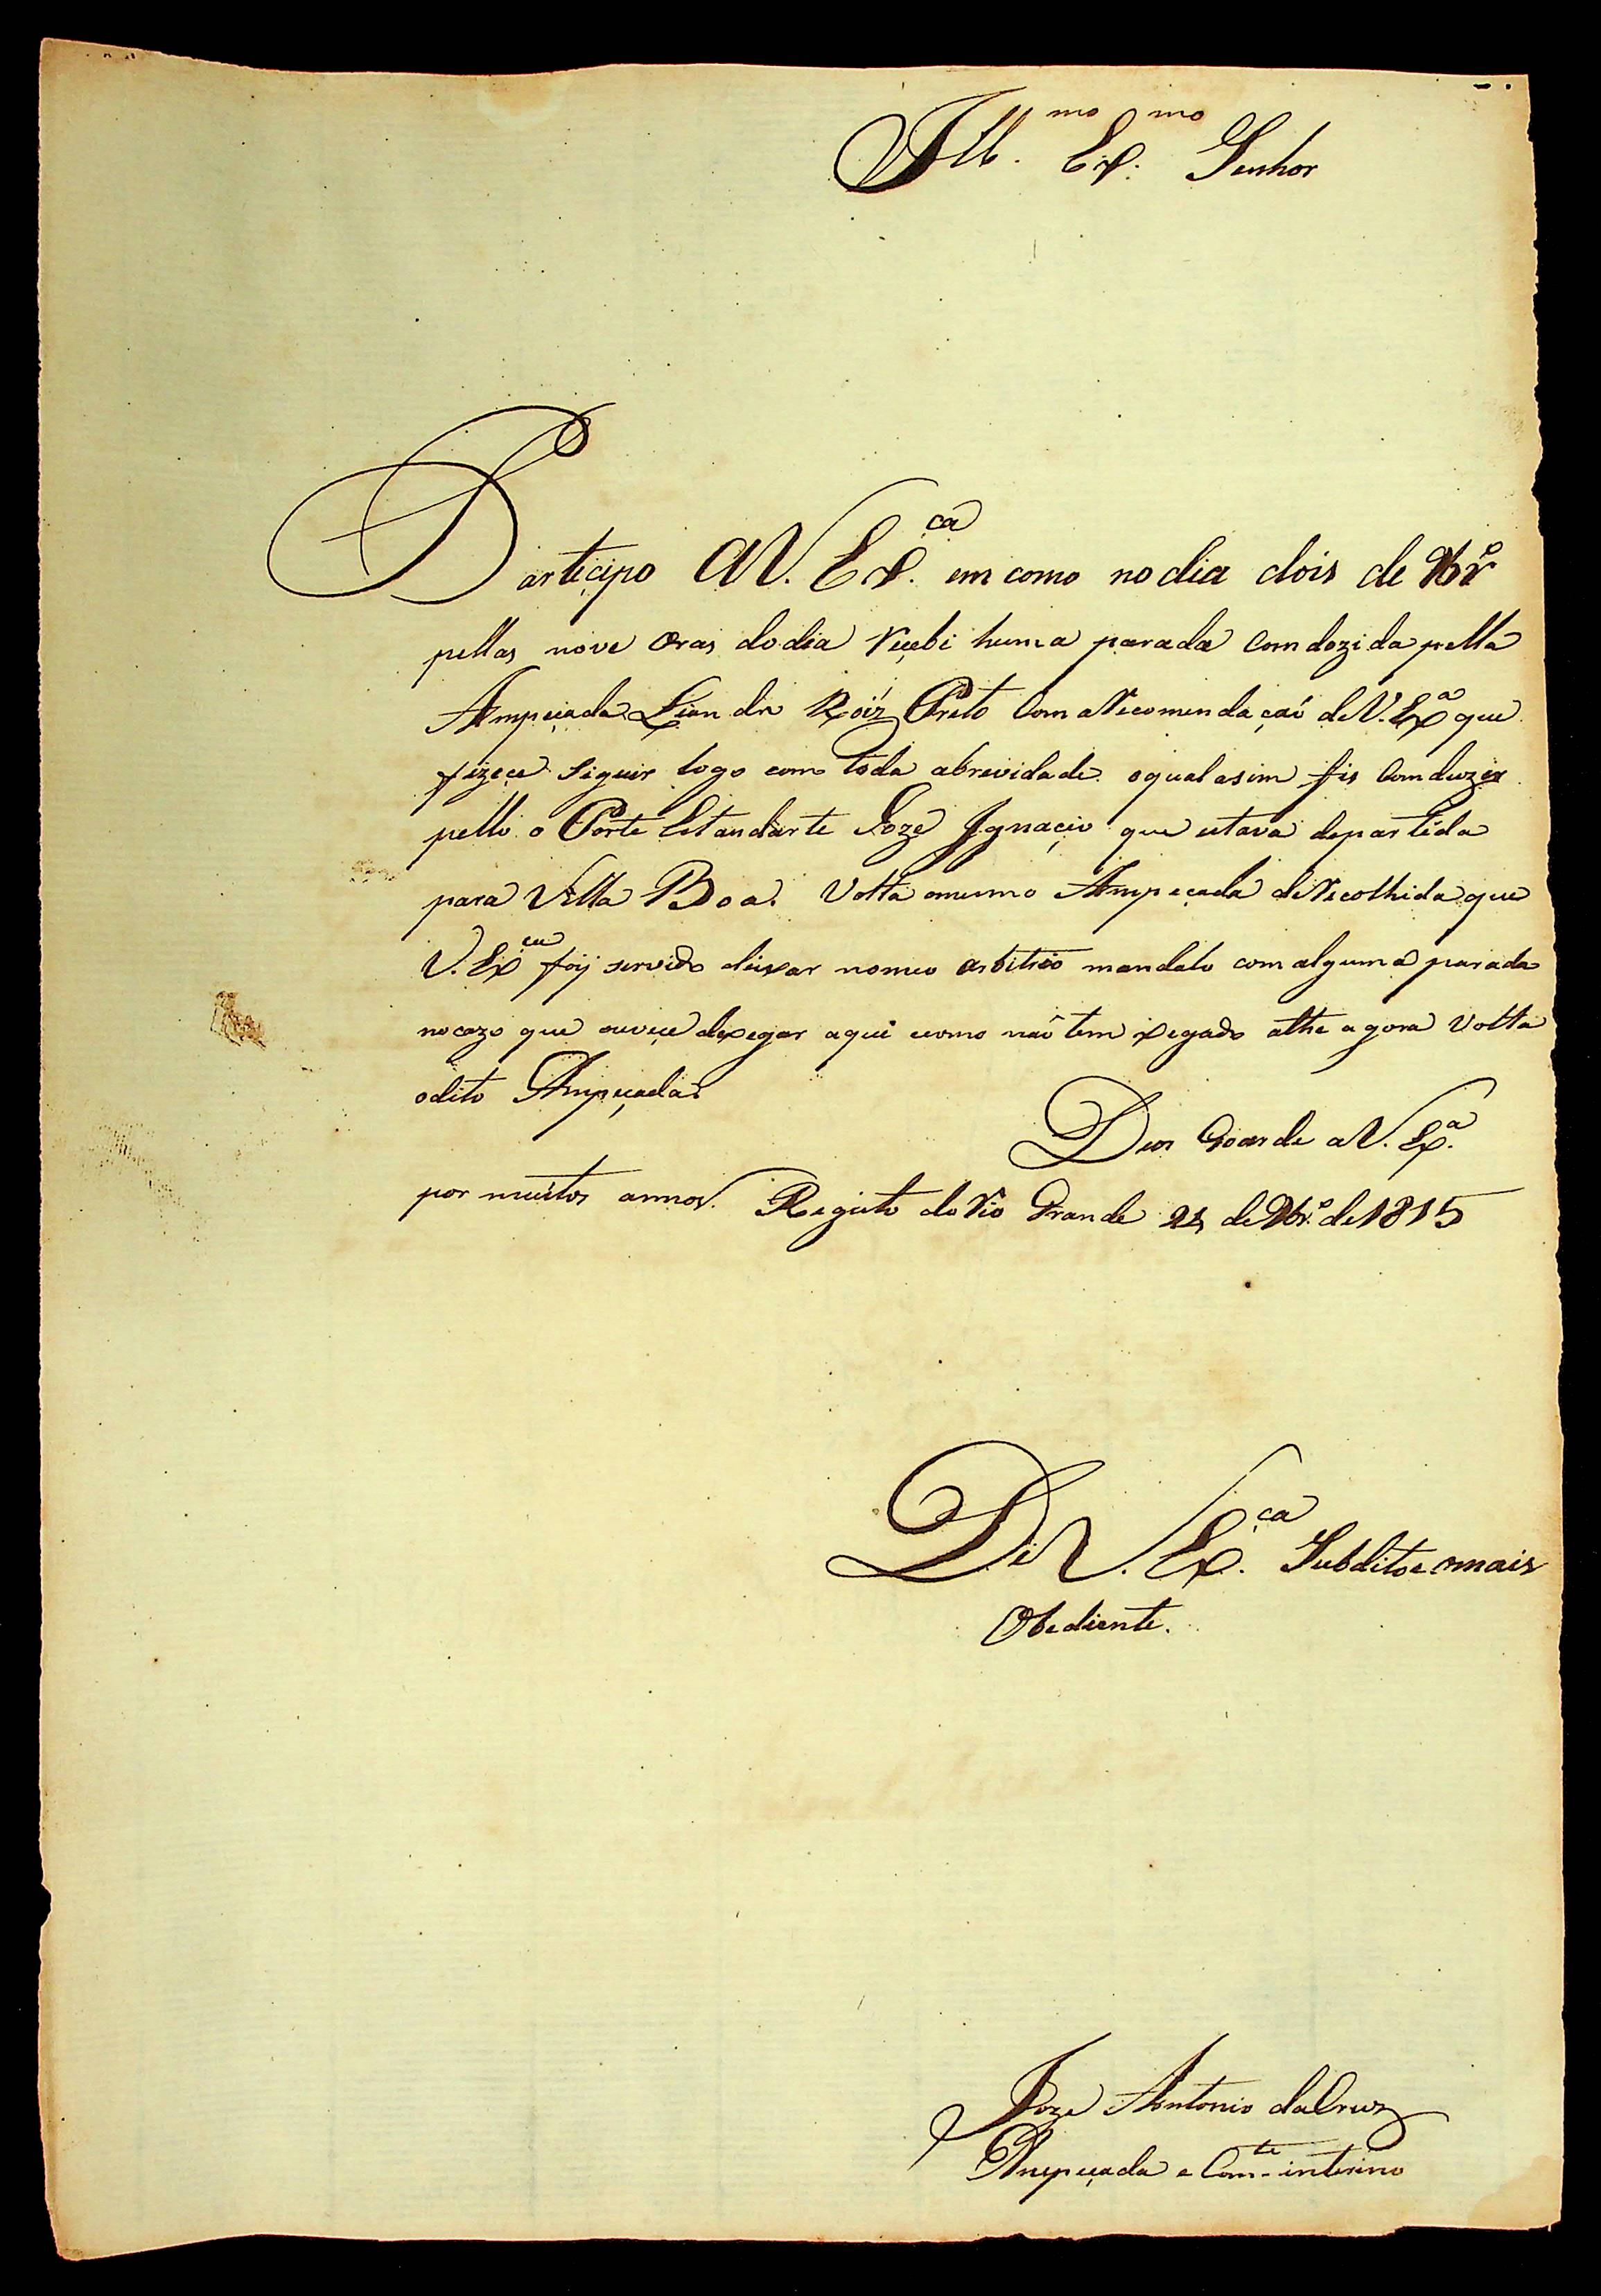 Ill.mo Ex.mo Senhor
Parteçipo a V. Ex.ça em como no dia dois de 9br.o
pellas nove oras do dia reçebi huma parada comdozida pella
Ampeçada Liandro Roiz Preto com a recomendaçaõ de V. Ex.a que
fizece siguir logo com toda abrevidade o qual asim fis comduzir
pello o Porte Estandarte Joze Ignaçio que estava departida
para Villa Boa. Volta o mesmo Ampeçada de recolhida que
V. Ex foij servido deixar no meo arbitrio mandalo com alguma parada
no cazo que ouveçe de xegar aqui e como naõ tem xegado athe agora volta
o dito Ampeçada
Deos Goarde a V. Ex.a
por muitos annos. Registo do Rio Grande de 9br.o de 1815
De V. Ex.ça Subdito e mais
Obediente.
Joze Antonio da Cruz
Anspeçada e Com.te interino